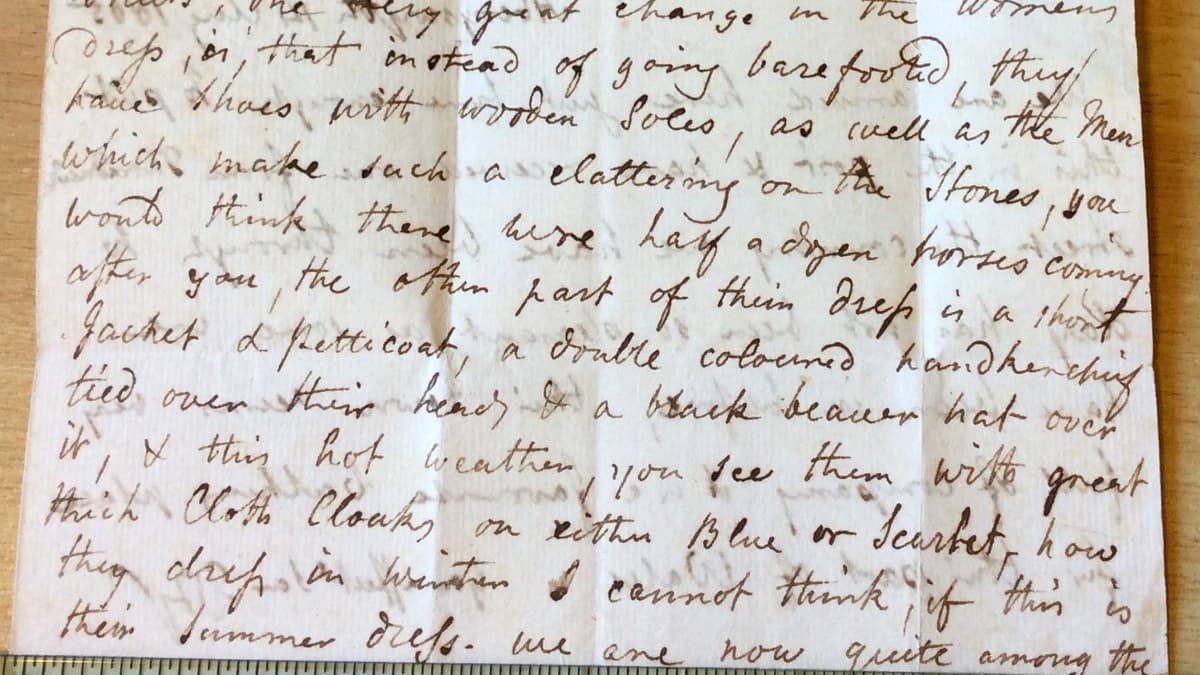 one very great change in the womens
dreſs, is, that instead of going barefooted, they
have shoes with wooden Soles, as well as the Men
which make such a clattering on the Stones, you
would think there were half a dozen horses coming
after you, the other part of their dreſs is a short
Jacket & Petticoat, a double coloured handkerchief
tied over their heads & a black beaver hat over
it, & this hot weather, you see them with great
thick Cloth Cloaks on either Blue or Scarlet, how
they dreſs in winter I cannot think, if this is
their Summer dreſs. we are now quite among the